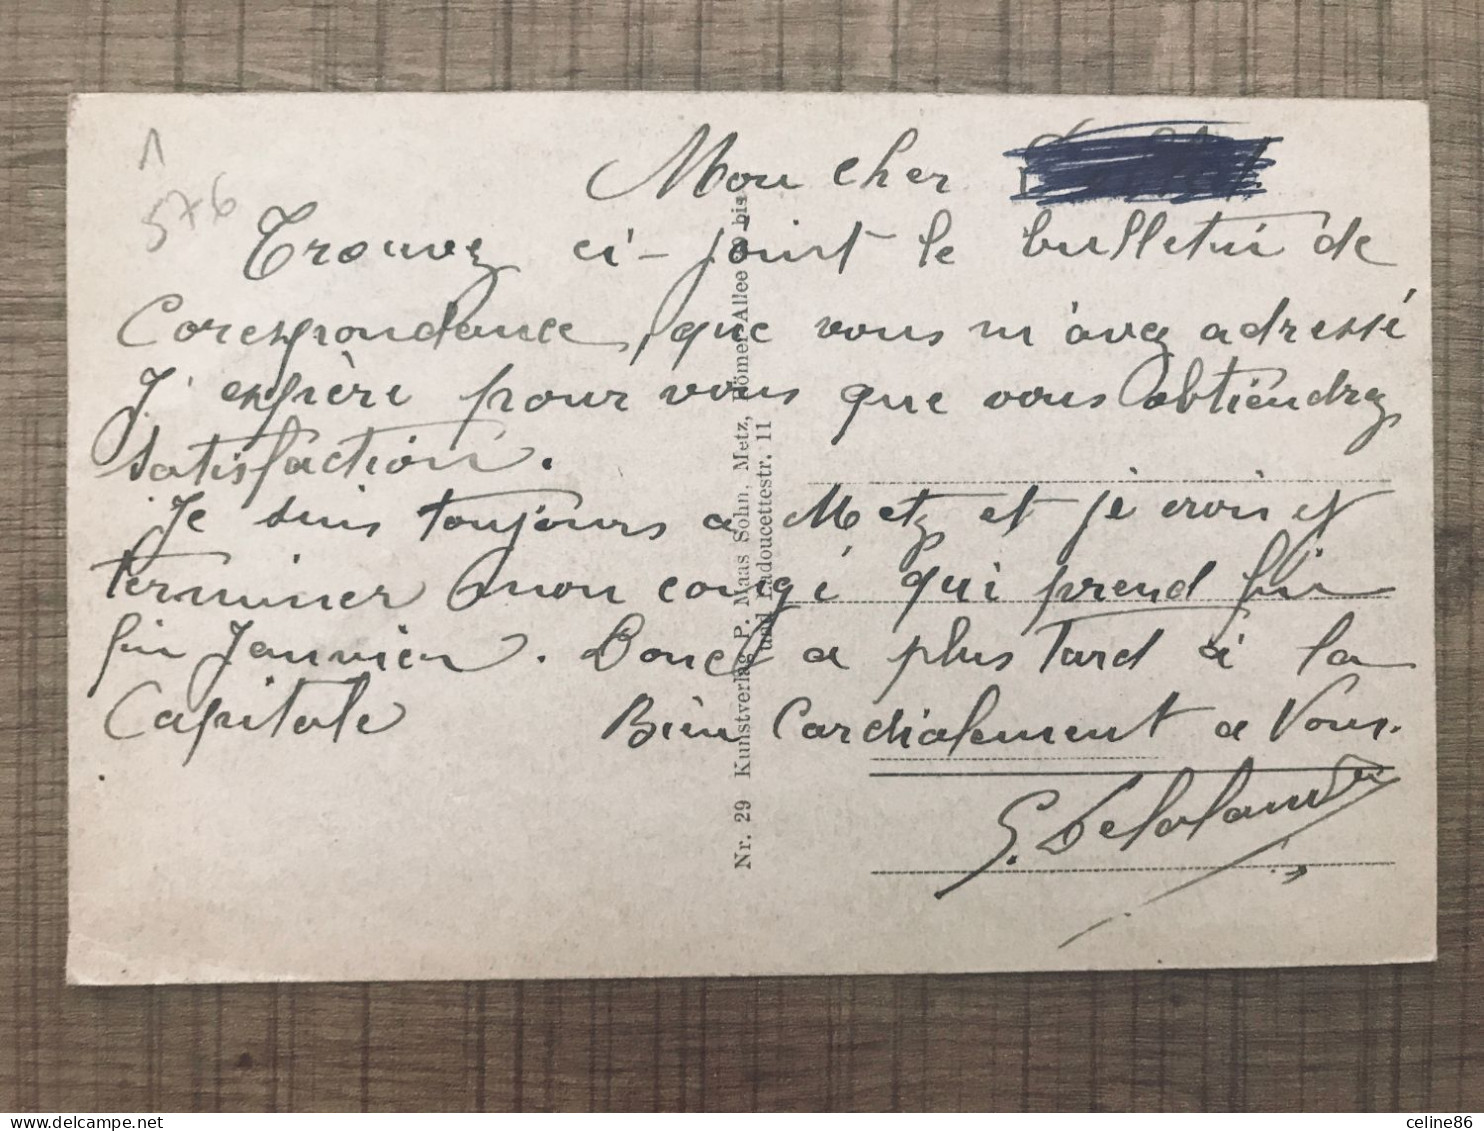 1
576
Mon cher
Trouvez ci-joint le bulletin de
Corespondance, que vous m'avez adressé
J'espère pour vous que vous obtiendrez
satisfaction.
Je suis toujours a Metz et je crois y
terminer mon congé qui prend fin
fin Janvier. Donc a plus tard à la
Capitale
Bien Cordialement a Vous.
G. Delalande
Nr. 29 Kunstverlag P. Maas Sohn, Metz, Römer-Allee bis
und Ladoucettestr. 11
delcampe.net
celine86